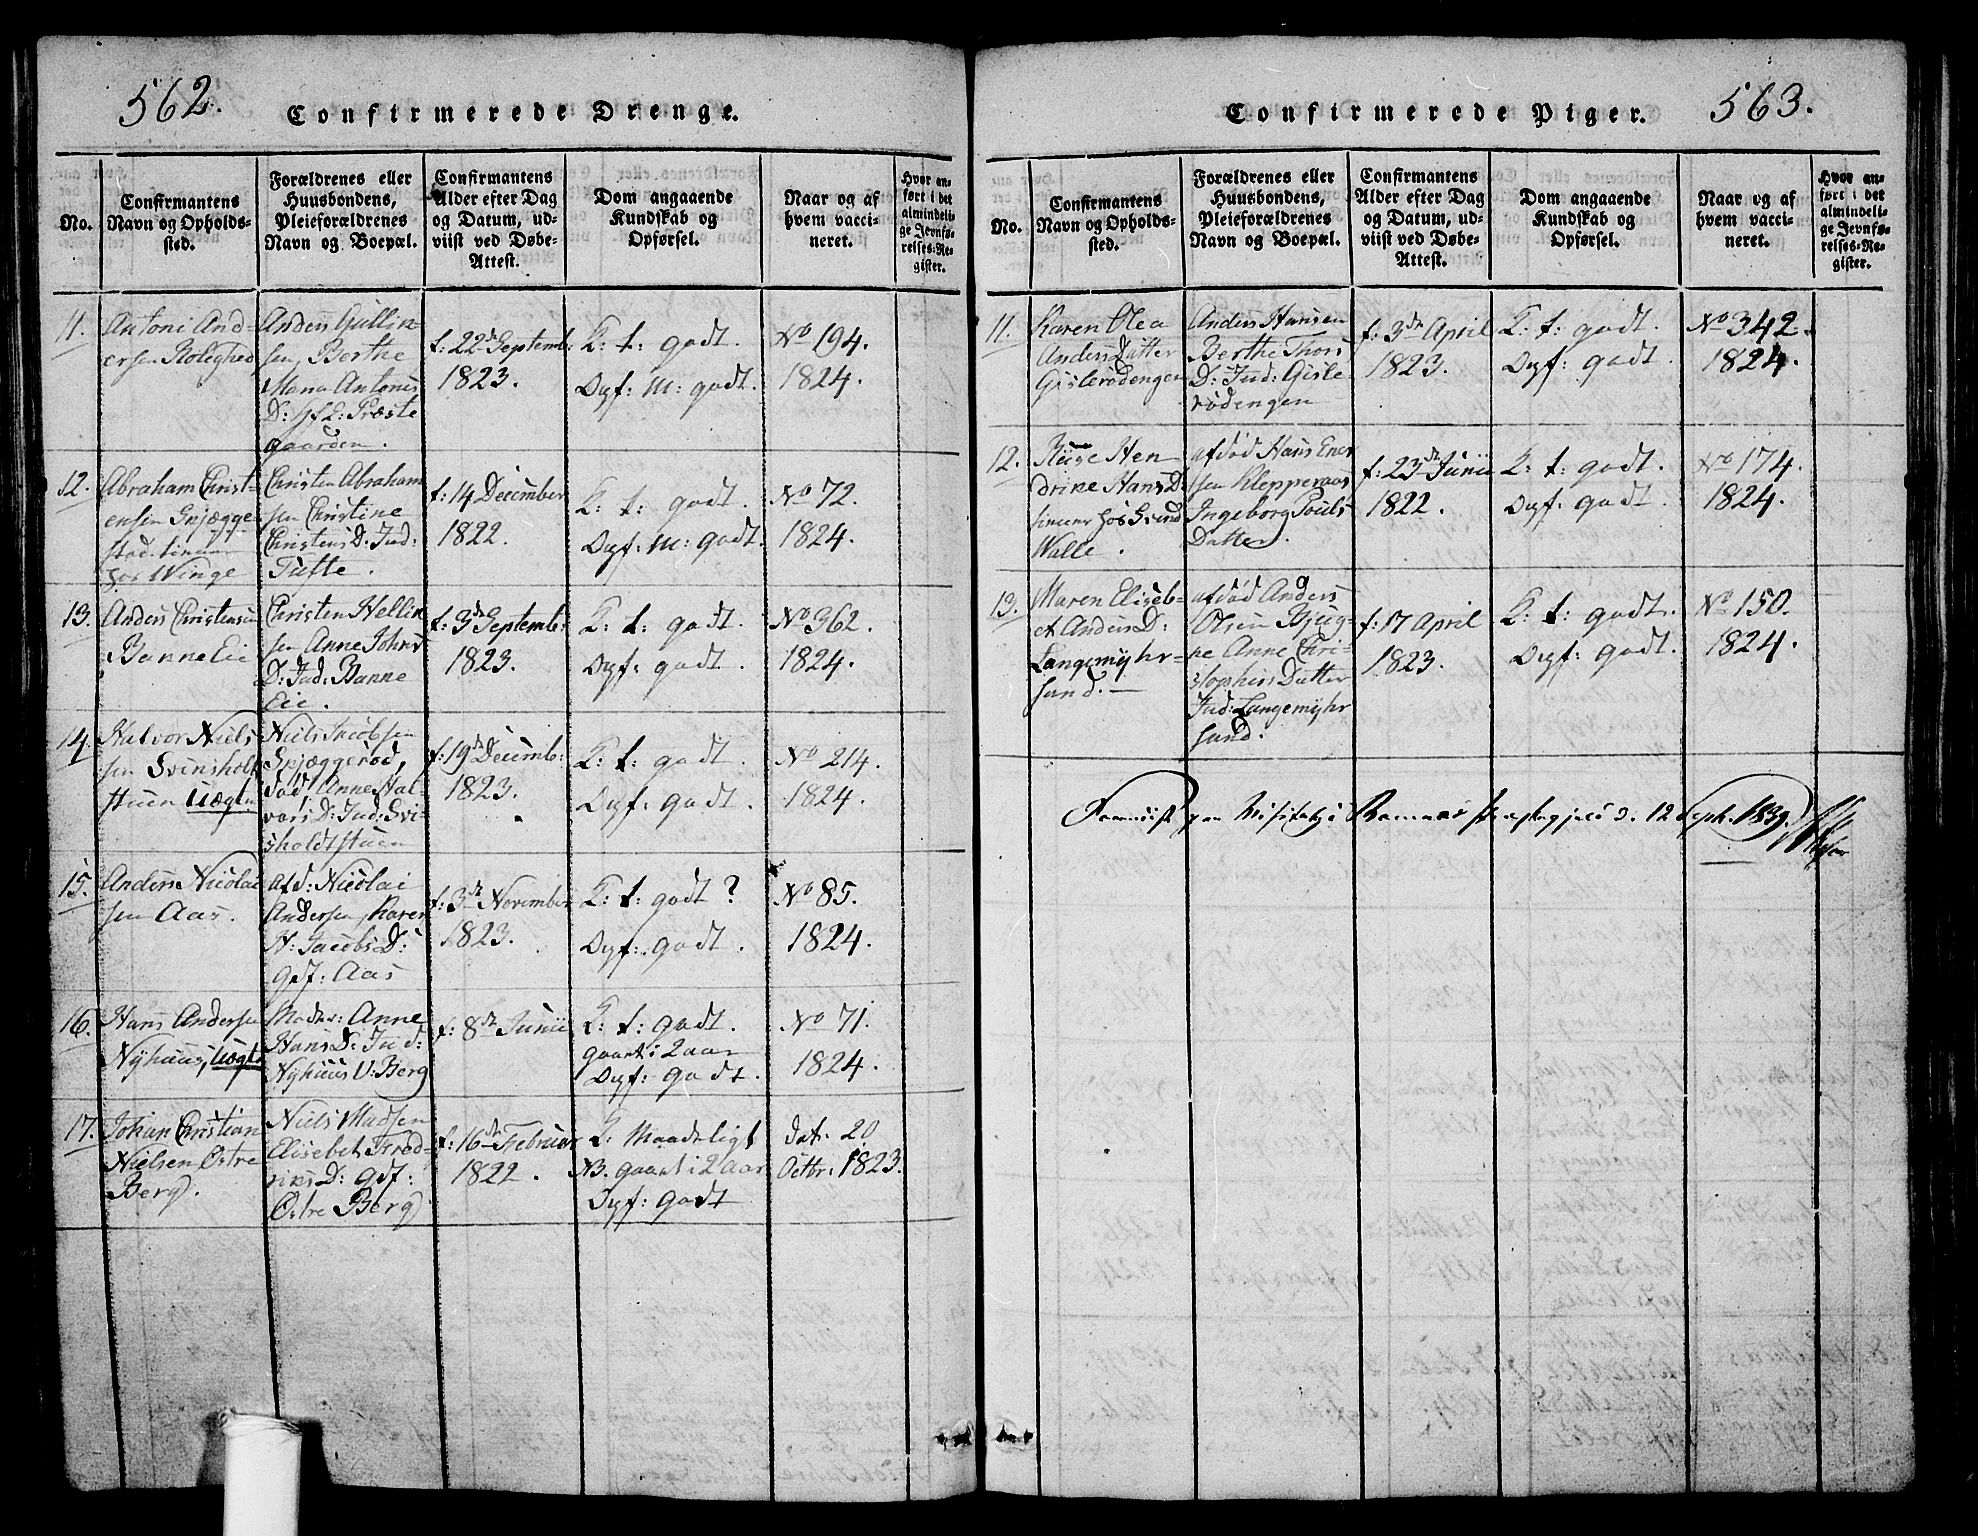 562.
Confirmerede Drenge.
No.
Confirmantens
Navn og Opholds-
sted.
Forældrenes eller
Huusbondens,
Pleieforældrenes
Navn og Boepæl.
Confirmantens
Alder efter Dag
og Datum, ud-
viist ved Døbe-
Attest.
Dom angaaende
Kundskab og
Opførsel.
Naar og af
hvem vacci-
neret.
Hvor an-
ført i det
almindeli-
ge Jevnfø-
relses-Re-
gister.
11.
Antoni And-
ersen
Anders Gullik
sen, Berthe
Maria Antonis
D: Præste
gaarden.
f: 22 Septemb:
1823.
K: t: godt.
Opf: M: godt.
No 194.
1824.
12.
Abraham Christ-
ensen
hos Winge
Christen Abraham
sen Christine
Christens D: Ind:
Tufte.
f: 14 December
1822.
K: t: godt.
Opf: M: godt.
No 72.
1824.
13.
Anders Christensen
Banne Eie
Christen Hellik
sen Anne Johns
D: Ind: Banne
Eie.
f: 3d Septemb:
1823.
K: t: godt.
Opf: godt.
No 362.
1824.
14.
Halvor Niels
sen Svinsholt
stuen Uægte
Niels Jacobsen
Anne Hal-
vors D: Ind: Svi
sholdtstuen
f: 19d Decemb:
1823.
K: t: godt.
Opf: godt.
No 214.
1824.
15.
Anders Nicolai
sen Aas.
afd: Nicolai
Andersen, Karen
H: Jacobs D:
gdf: Aas
f: 3de November
1823.
K: t: godt?
Opf: godt.
No 85.
1824.
16.
Hans Andersen
Nyhuus, Uægte
Moder: Anne
Hans D: Ind:
Nyhuus U: Berg
f: 8de Junii
K: t: godt.
gaaet i 2 aar
Opf: godt.
No 71.
1824.
17.
Johan Christian
Nielsen Østre
Berg.
Niels Madsen
Elisebet Fred-
riks D: gdf:
Østre Berg
f: 16de Februar
1822.
K: Maadeligt
NB. gaaet i 2 aar
Opf: godt
dat: 20
Octbr: 1823.
563.
Confirmerede Piger.
No.
Confirmantens
Navn og Opholds-
sted.
Forældrenes eller
Huusbondens,
Pleieforældrenes
Navn og Boepæl.
Confirmantens
Alder efter Dag
og Datum, ud-
viist ved Døbe-
Attest.
Dom angaaende
Kundskab og
Opførsel.
Naar og af
hvem vacci-
neret.
Hvor an-
ført i det
almindeli-
ge Jevnfø-
relses-Re-
gister.
11.
Karen Olea
Anders Datter
Gislerødengen
Anders Hansen
Berthe Thors
D: Ind: Gisle
rødengen
f: 3de April
1823.
K: t: godt.
Opf: godt.
No 342.
1824.
12.
Hen
drine Hans D:
tiener hos Svend
Walle.
afdød Hans Ener
sen Klepperaas
Ingeborg Pouls
Datter.
f: 23de Junii
1822.
K: t: godt.
Opf: godt.
No 174.
1824.
13.
Maren Eliseb-
et Anders D:
Langemyhr-
sund.-
afdød Anders
Olsen Bjug-
ne Anne Chri-
stophers Datter
Ind: Langemyhr
sund.
f: 17 April
1823.
K: t: godt.
Opf: godt.
No 150.
1824.
Fremviist paa Visitats i Ramnæs Præstegjeld d. 12 Sept. 1839.